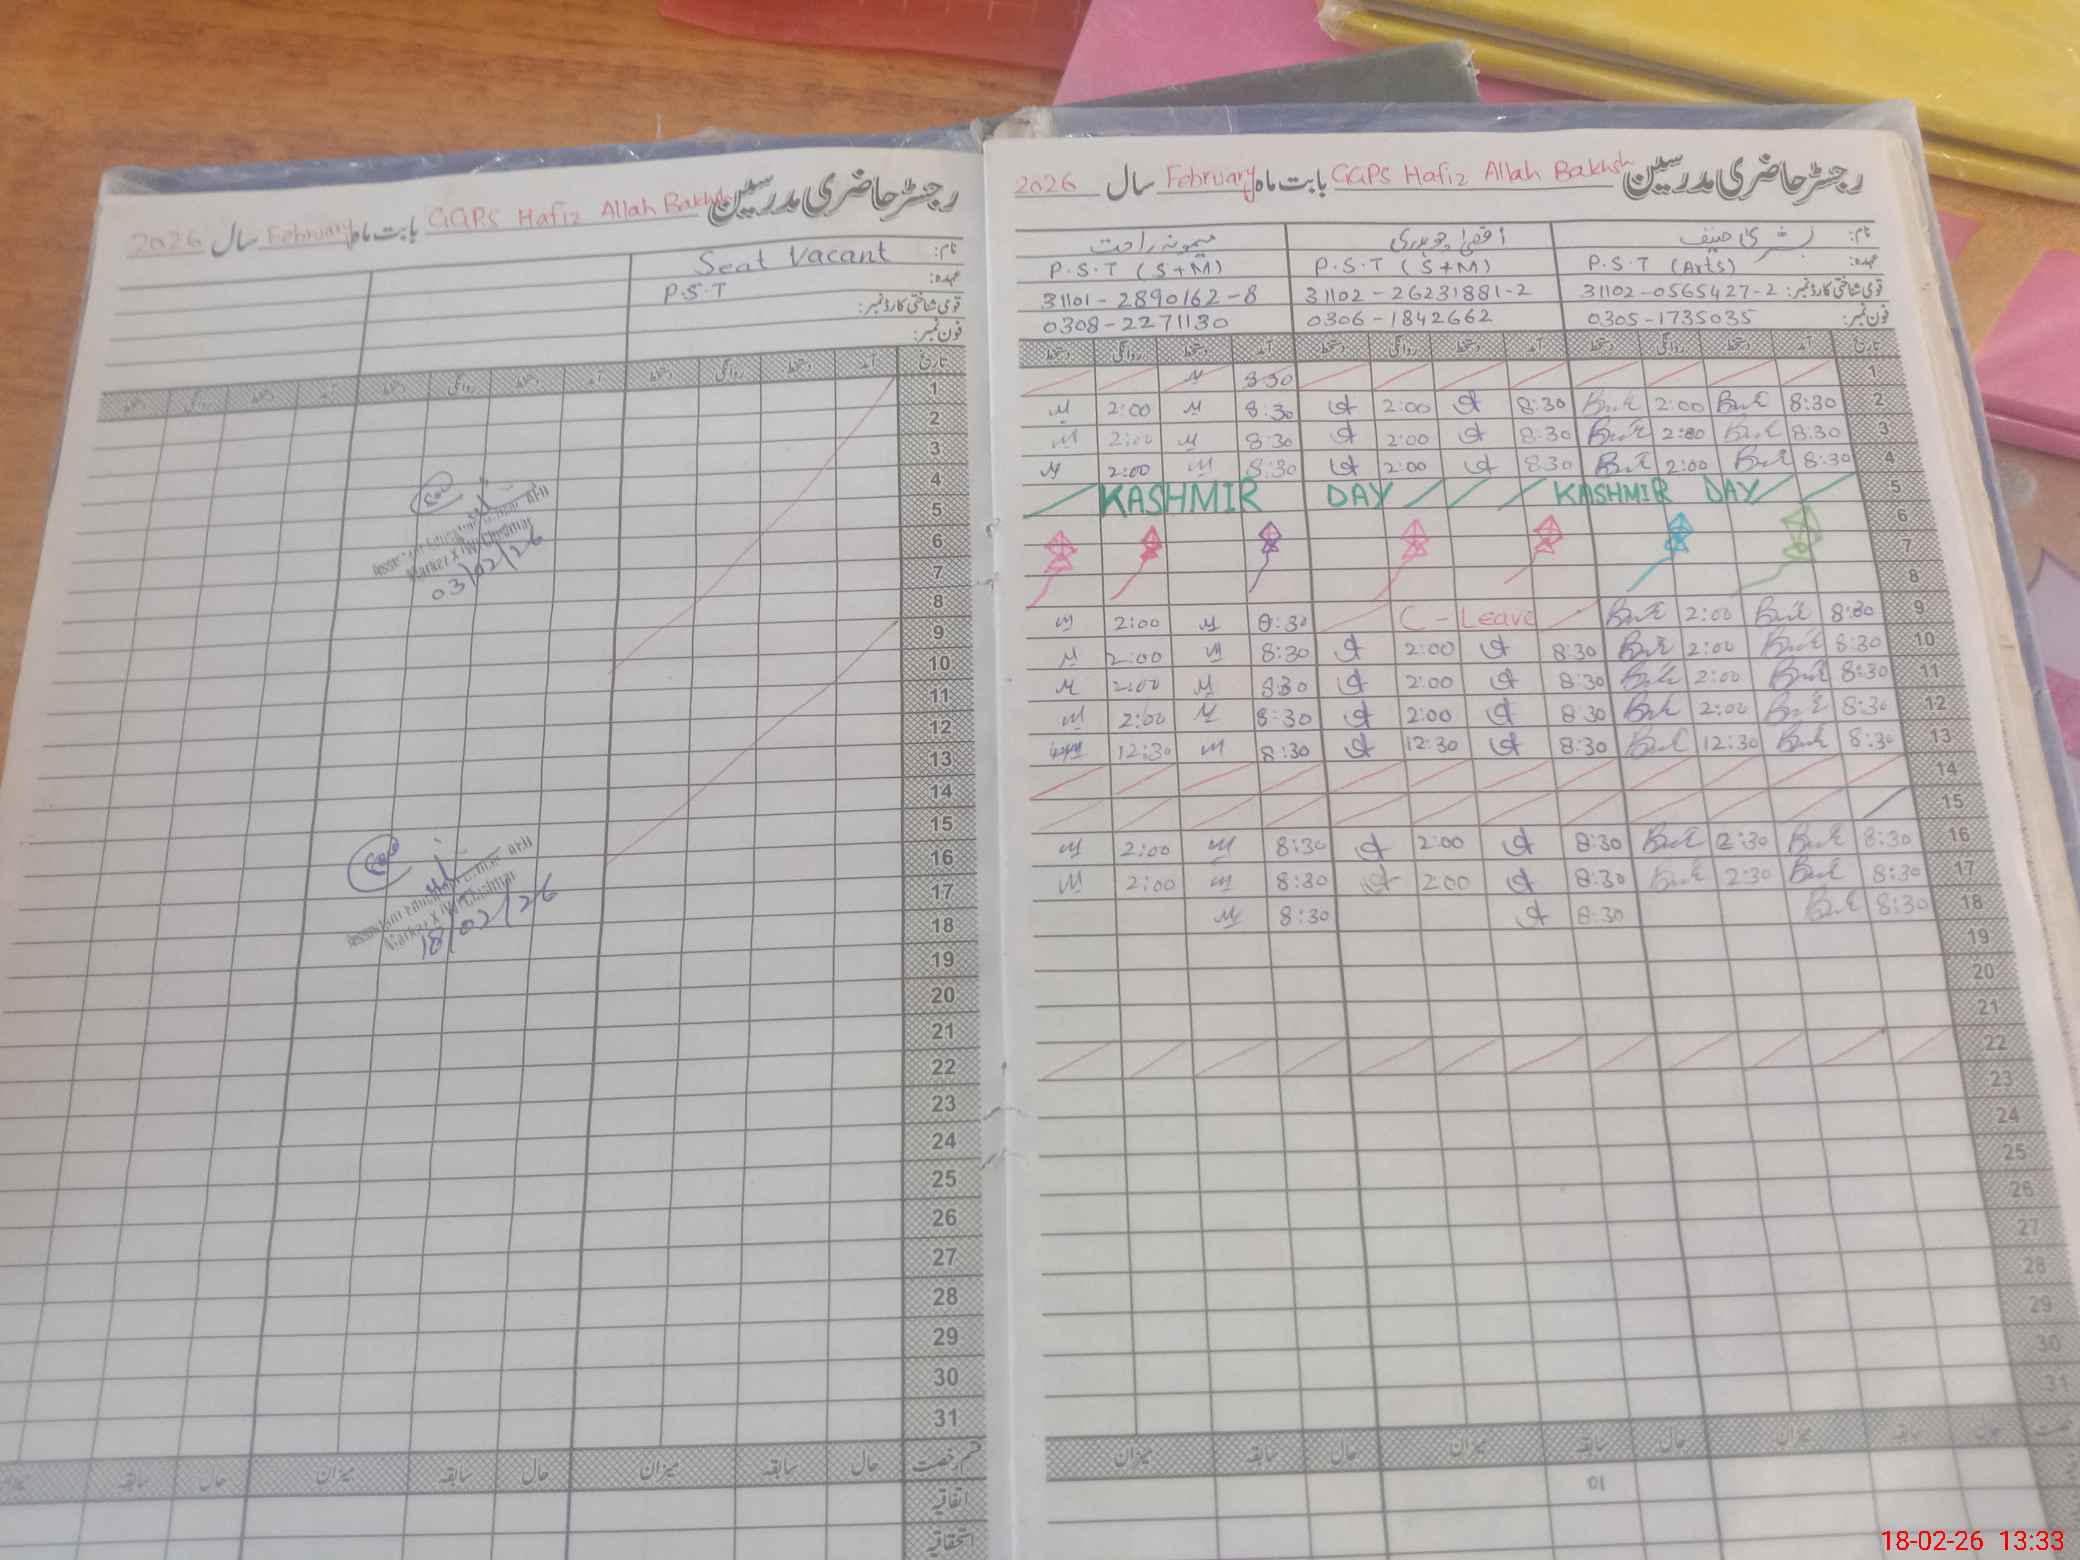 2026 سال February بابت ماہ GGPS Hafiz Allah Bakhsh رجسٹر حاضری مدرسین
Seat Vacant نام:
P.S.T عہدہ:
قومی شناختی کارڈ نمبر:
فون نمبر:
دستخط روانگی دستخط آمد دستخط روانگی دستخط آمد دستخط روانگی دستخط آمد تاریخ
1
2
3
4
5
6
7
8
9
10
11
12
13
14
15
16
17
18
19
20
21
22
23
24
25
26
27
28
29
30
31
03/02/26
18/02/26
میزان سابقہ حال میزان سابقہ حال میزان سابقہ حال قسم رخصت
اتفاقیہ
استحقاقیہ
2026 سال February بابت ماہ GGPS Hafiz Allah Bakhsh رجسٹر حاضری مدرسین
میمونہ راحت اقصیٰ چوہدری بشریٰ حنیف نام:
P.S.T (S+M) P.S.T (S+M) P.S.T (Arts) عہدہ:
31101-2890162-8 31102-26231881-2 31102-0565427-2 قومی شناختی کارڈ نمبر:
0308-2271130 0306-1842662 0305-1735035 فون نمبر:
دستخط روانگی دستخط آمد دستخط روانگی دستخط آمد دستخط روانگی دستخط آمد تاریخ
8:30 1
2:00 8:30 2:00 8:30 2:00 8:30 2
2:00 8:30 2:00 8:30 2:00 8:30 3
2:00 8:30 2:00 8:30 2:00 8:30 4
KASHMIR DAY KASHMIR DAY 5
6
7
8
2:00 8:30 C-Leave 2:00 8:30 9
2:00 8:30 2:00 8:30 2:00 8:30 10
2:00 8:30 2:00 8:30 2:00 8:30 11
2:00 8:30 2:00 8:30 2:00 8:30 12
12:30 8:30 12:30 8:30 12:30 8:30 13
14
15
2:00 8:30 2:00 8:30 2:30 8:30 16
2:00 8:30 2:00 8:30 2:30 8:30 17
8:30 8:30 8:30 18
19
20
21
22
23
24
25
26
27
28
29
30
31
میزان سابقہ حال میزان سابقہ حال میزان سابقہ حال
01
18-02-26 13:33